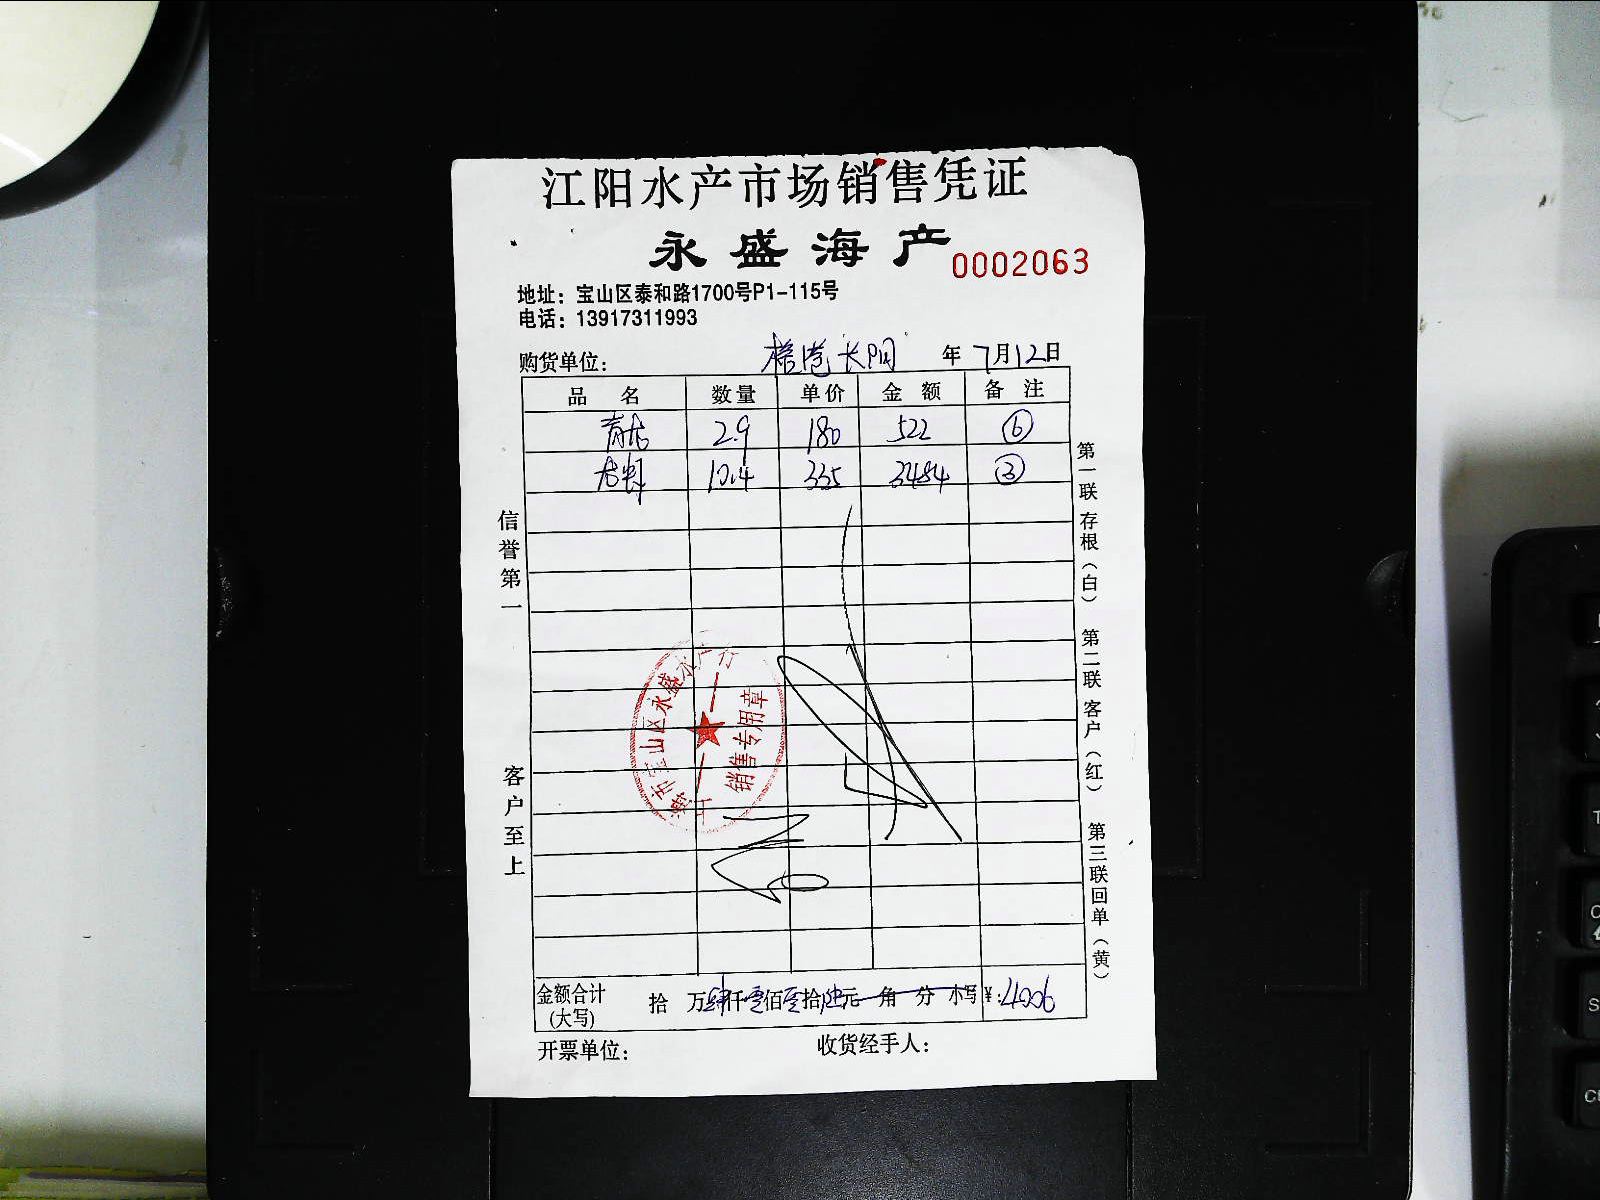 江阳水产市场销售凭证
永盛海产
0002063
地址：宝山区泰和路1700号P1-115号
电话：13917311993
购货单位： 长阳 年 7月12日
品 名 数量 单价 金 额 备 注
青龙 2.9 180 522 ⑥
10.4 335 3484 ③
信誉第一
客户至上
第一联 存根（白） 第二联 客户（红） 第三联 回单（黄）
上海市宝山区永盛水产行
销售专用章
金额合计 拾 万肆仟零佰零拾陆元 角 分 小写￥：4006
(大写)
开票单位： 收货经手人：